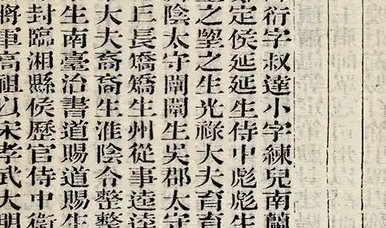 衍字叔達小字練兒南蘭
定侯延延生侍中彪彪生
之望之生光祿大夫育育
陰太守闡闡生吳郡太守
丘長矯矯生州從事逵逵
大夫裔裔生淮陰令整整
生南臺治書道賜道賜生
封臨湘縣侯歷官侍中衛
將軍高祖以宋孝武大明